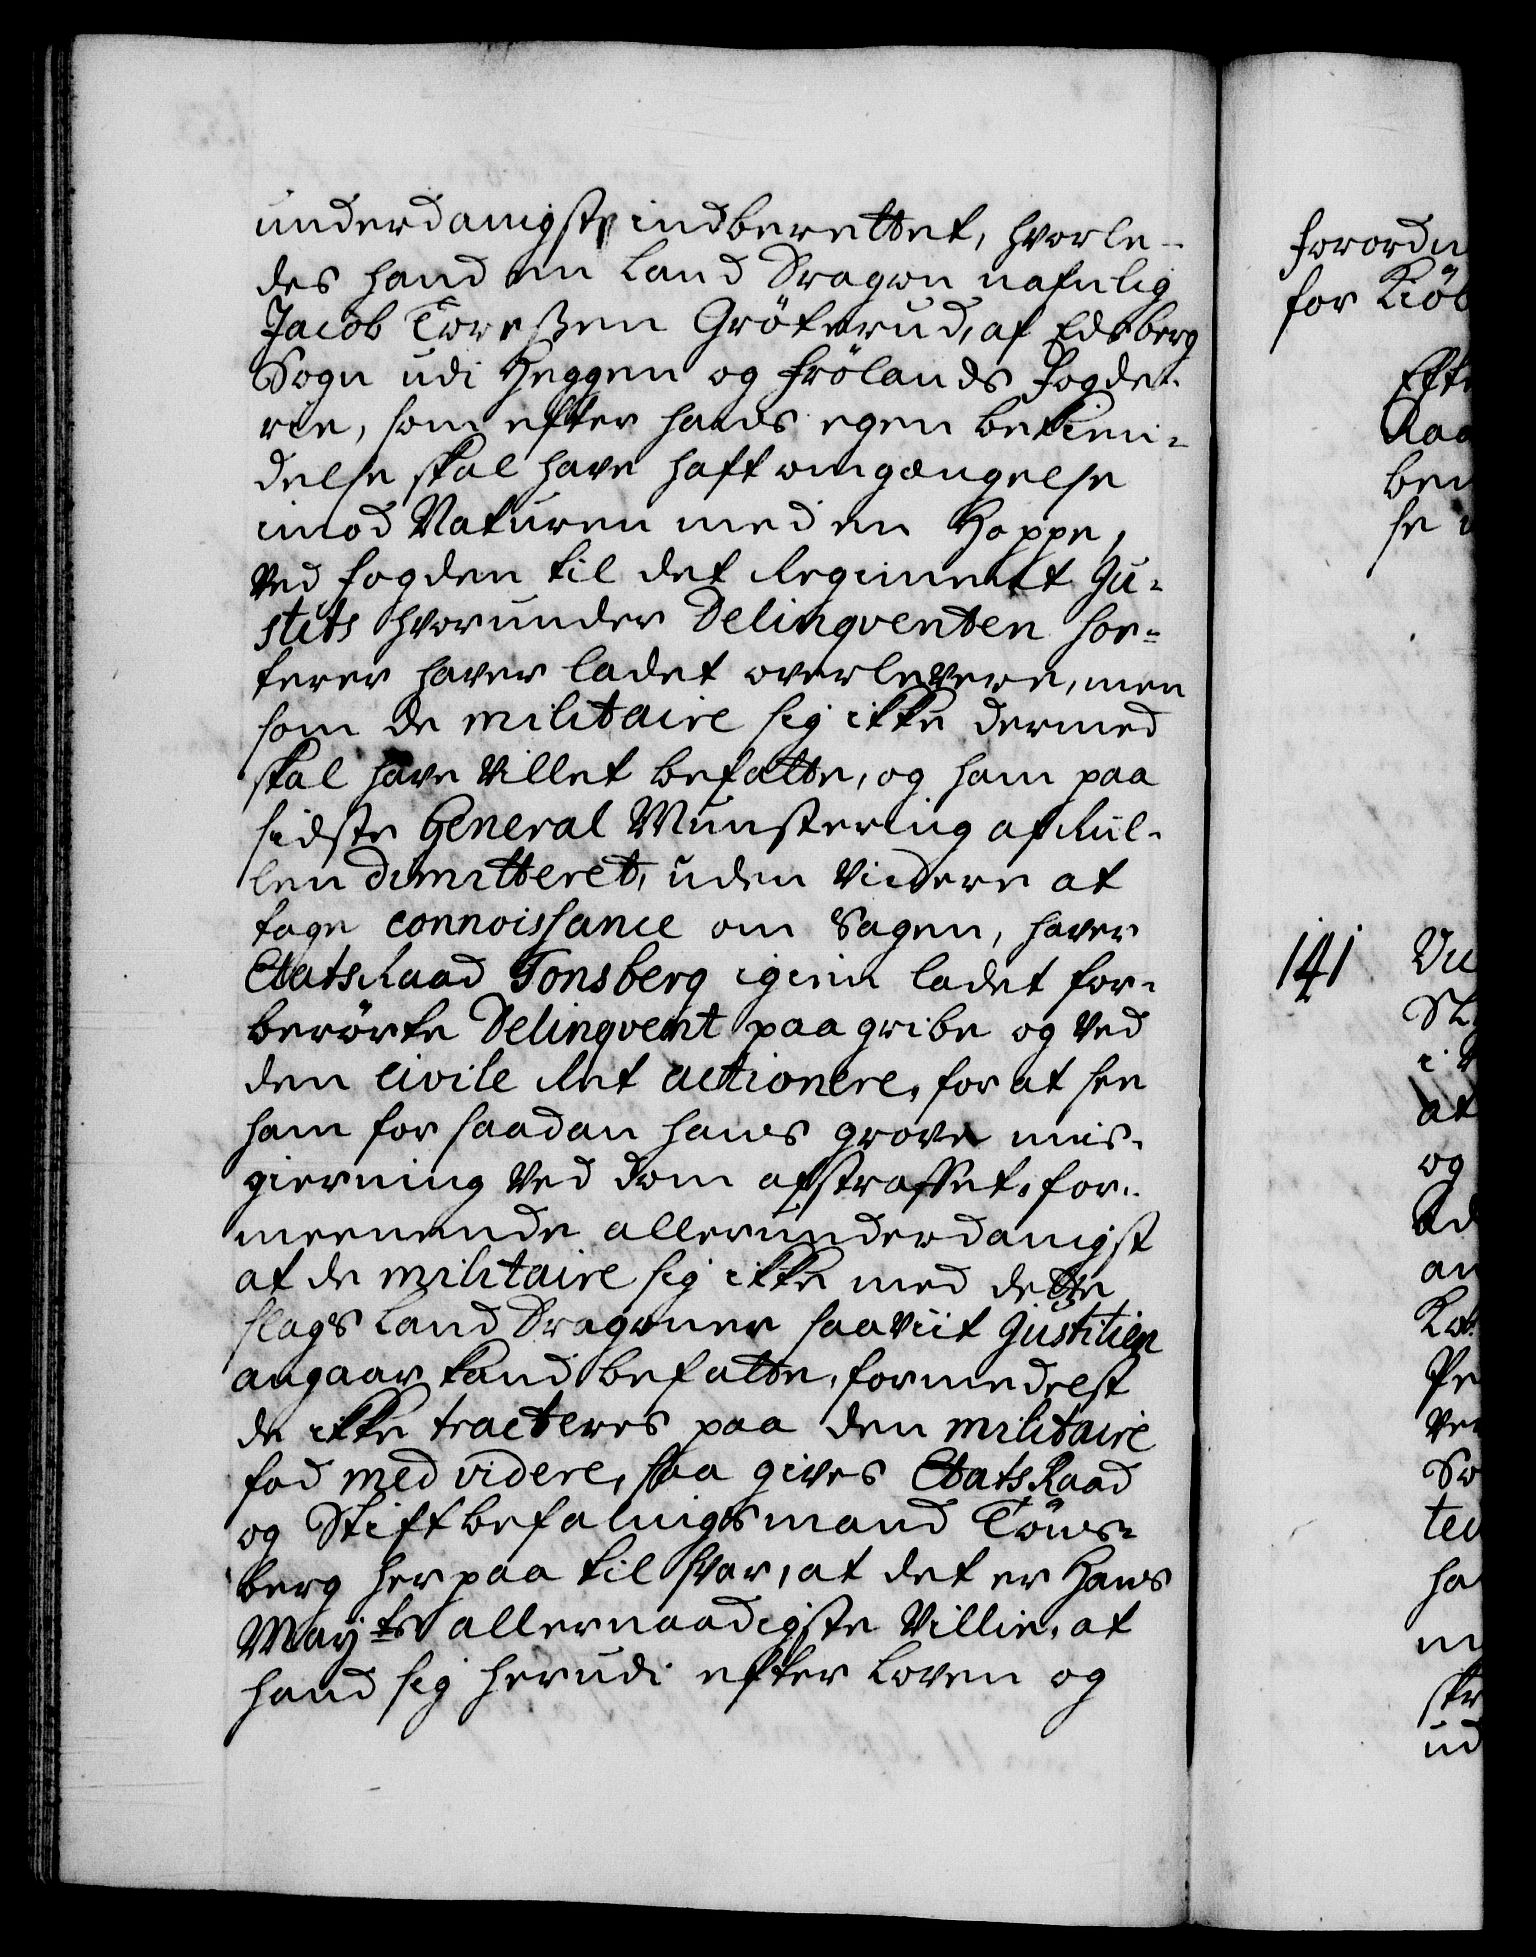 underdanigst indberettet, hvorle-
des hand en Land Dragon nafnlig
Jacob Toreßen Gröterud, af Edsberg
Sogn udi Heggen og Frölands Fogde-
rie, som efter hands egen bekien-
delse skal have haft omgængelse
imod Naturen med en Hoppe,
Ved fogden til det Regiments Ju-
stits hvorunder Delinqventen sor-
terer haver ladet overlevere, men
som de militaire sig ikke dermed
skal have Villet befatte, og ham paa
sidste General Mynstering af Rul-
len dimitteret, uden Videre at
tage connoissance om Sagen, haver
EtatsRaad Tonsberg igien ladet for-
berörte Delinqvent paagribe og Ved
den civile Ret actionere, for at see
ham for saadan hans grove mis-
gierning Ved dom afstraffet, for-
meenende allerunderdanigst
at de militaire sig ikke med dette
slags Land Dragoner saaviit Justitien
angaar kand befatte, formedelst
de ikke tracteres paa den militaire
fod med videre, saa gives EtatsRaad
og Stiftbefalingsmand Töns-
berg herpaa til svar, at det er Hans
Mayts allernaadigste Villie, at
hand sig herudi efter Loven og
forordn
for Kiöb
Eft
Raa
ben
se
141
at
og
an
Pe
ver
ted
ha
ud